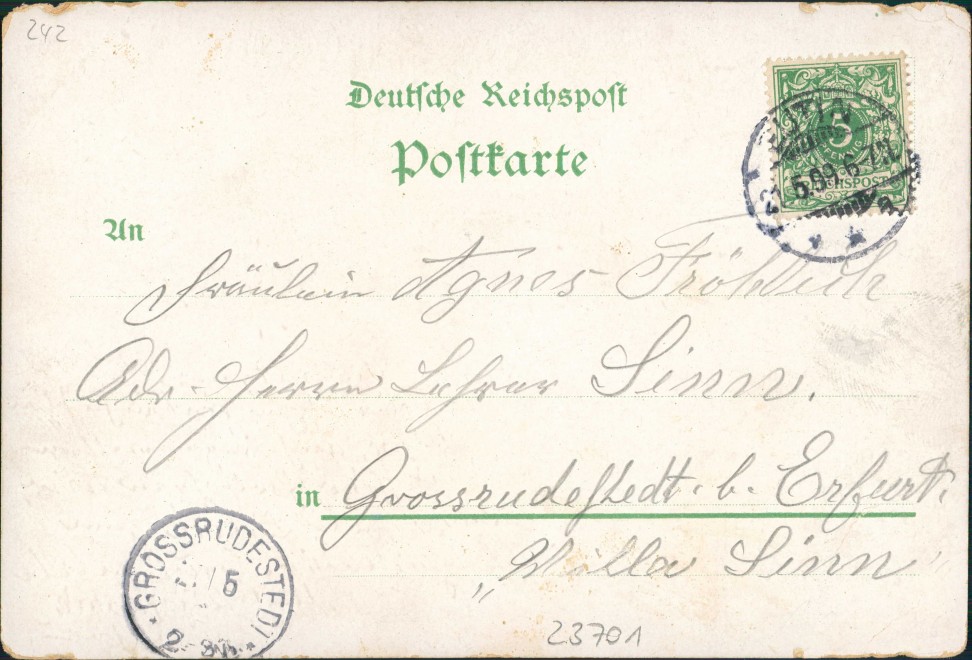 242
Deutsche Reichspost
Postkarte
EUTIN
5.99.6-7N.
a
5
PFENNIG
REICHSPOST
An
Fräulein Agnes Fröhlich
Adr. Herrn Lehrer Sinn.
in Grossrudestedt. b. Erfurt.
„Villa Sinn"
GROSSRUDESTEDT
5
23701